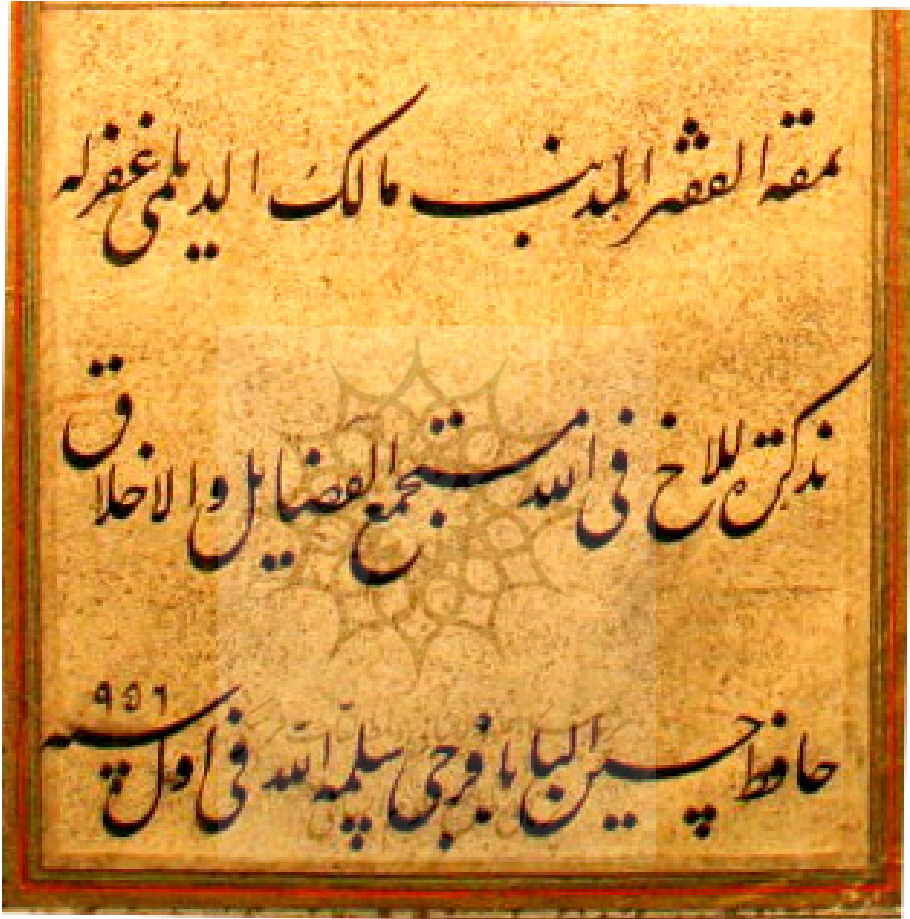 نمقه الفقیر المذنب مالک الدیلمی غفر له
تذکرة للاخ فی الله مستجمع الفضایل والاخلاق
حافظ حسین البابافرجی سلمه الله فی اول سنه ۹۵۶